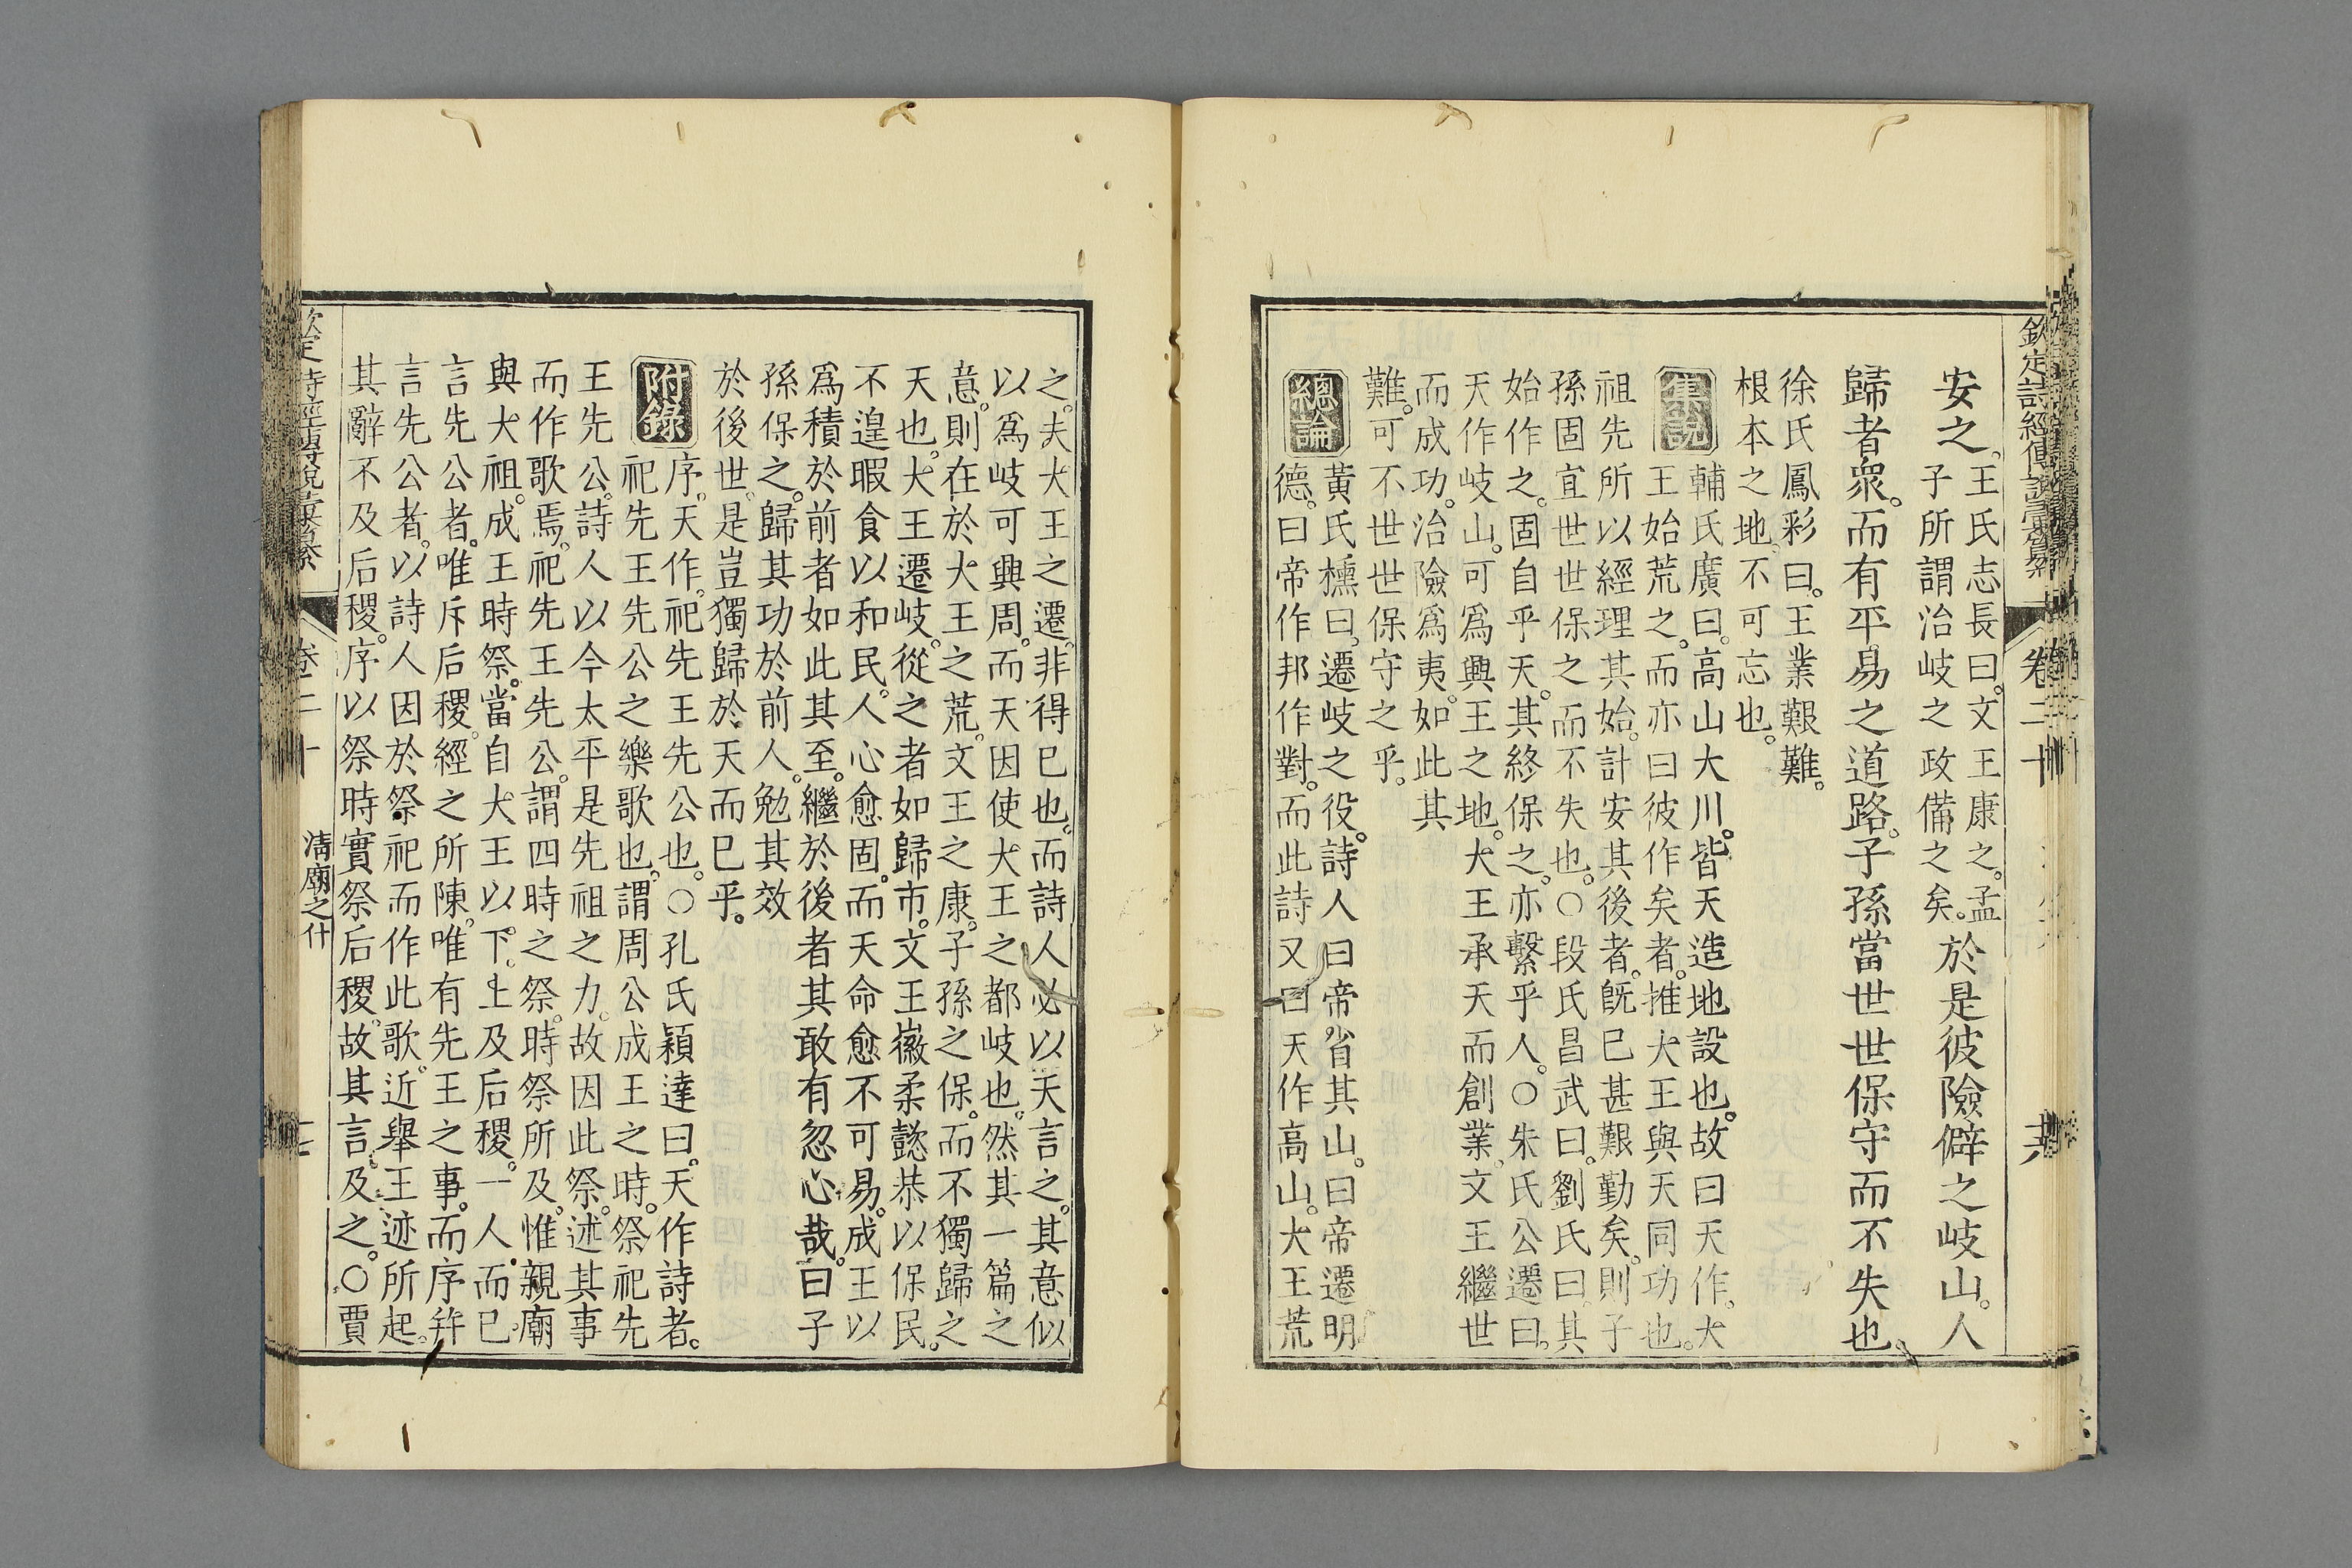 欽定詩經傳說彙纂
卷二十
安之。王氏志長曰。文王康之。孟
子所謂治岐之政備之矣。於是彼險僻之岐山。人
歸者衆。而有平易之道路。子孫當世世保守而不失也。
徐氏鳳彩曰。王業艱難。
根本之地。不可忘也。
集說
輔氏廣曰。高山大川。皆天造地設也。故曰天作。大
王始荒之。而亦曰彼作矣者。推大王與天同功也。
祖先所以經理其始。計安其後者。旣已甚艱勤矣。則子
孫固宜世世保之而不失也。○段氏昌武曰。劉氏曰。其
始作之。固自乎天。其終保之。亦繫乎人。○朱氏公遷曰。
天作岐山。可爲興王之地。大王承天而創業。文王繼世
而成功。治險爲夷。如此其
難。可不世世保守之乎。
總論
黃氏櫄曰。遷岐之役。詩人曰帝省其山。曰帝遷明
德。曰帝作邦作對。而此詩又曰天作高山。大王荒
之。夫大王之遷。非得已也。而詩人必以天言之。其意似
以爲岐可興周。而天因使大王之都岐也。然其一篇之
意。則在於大王之荒。文王之康。子孫之保。而不獨歸之
天也。大王遷岐。從之者如歸市。文王徽柔懿恭。以保民。
不遑暇食以和民。人心愈固。而天命愈不可易。成王以
爲積於前者如此其至。繼於後者其敢有忽心哉。曰子
孫保之。歸其功於前人。勉其效
於後世。是豈獨歸於天而已乎。
附錄
序。天作。祀先王先公也。○孔氏穎達曰。天作詩者。
祀先王先公之樂歌也。謂周公成王之時。祭祀先
王先公。詩人以今太平是先祖之力。故因此祭。述其事
而作歌焉。祀先王先公。謂四時之祭。時祭所及。惟親廟
與大祖。成王時祭。當自大王以下。上及后稷。一人而已。
言先公者。唯斥后稷。經之所陳。唯有先王之事。而序幷
言先公者。以詩人因於祭祀而作此歌。近舉王迹所起。
其辭不及后稷。序以祭時實祭后稷。故其言及之。○賈
卷二十
清廟之什